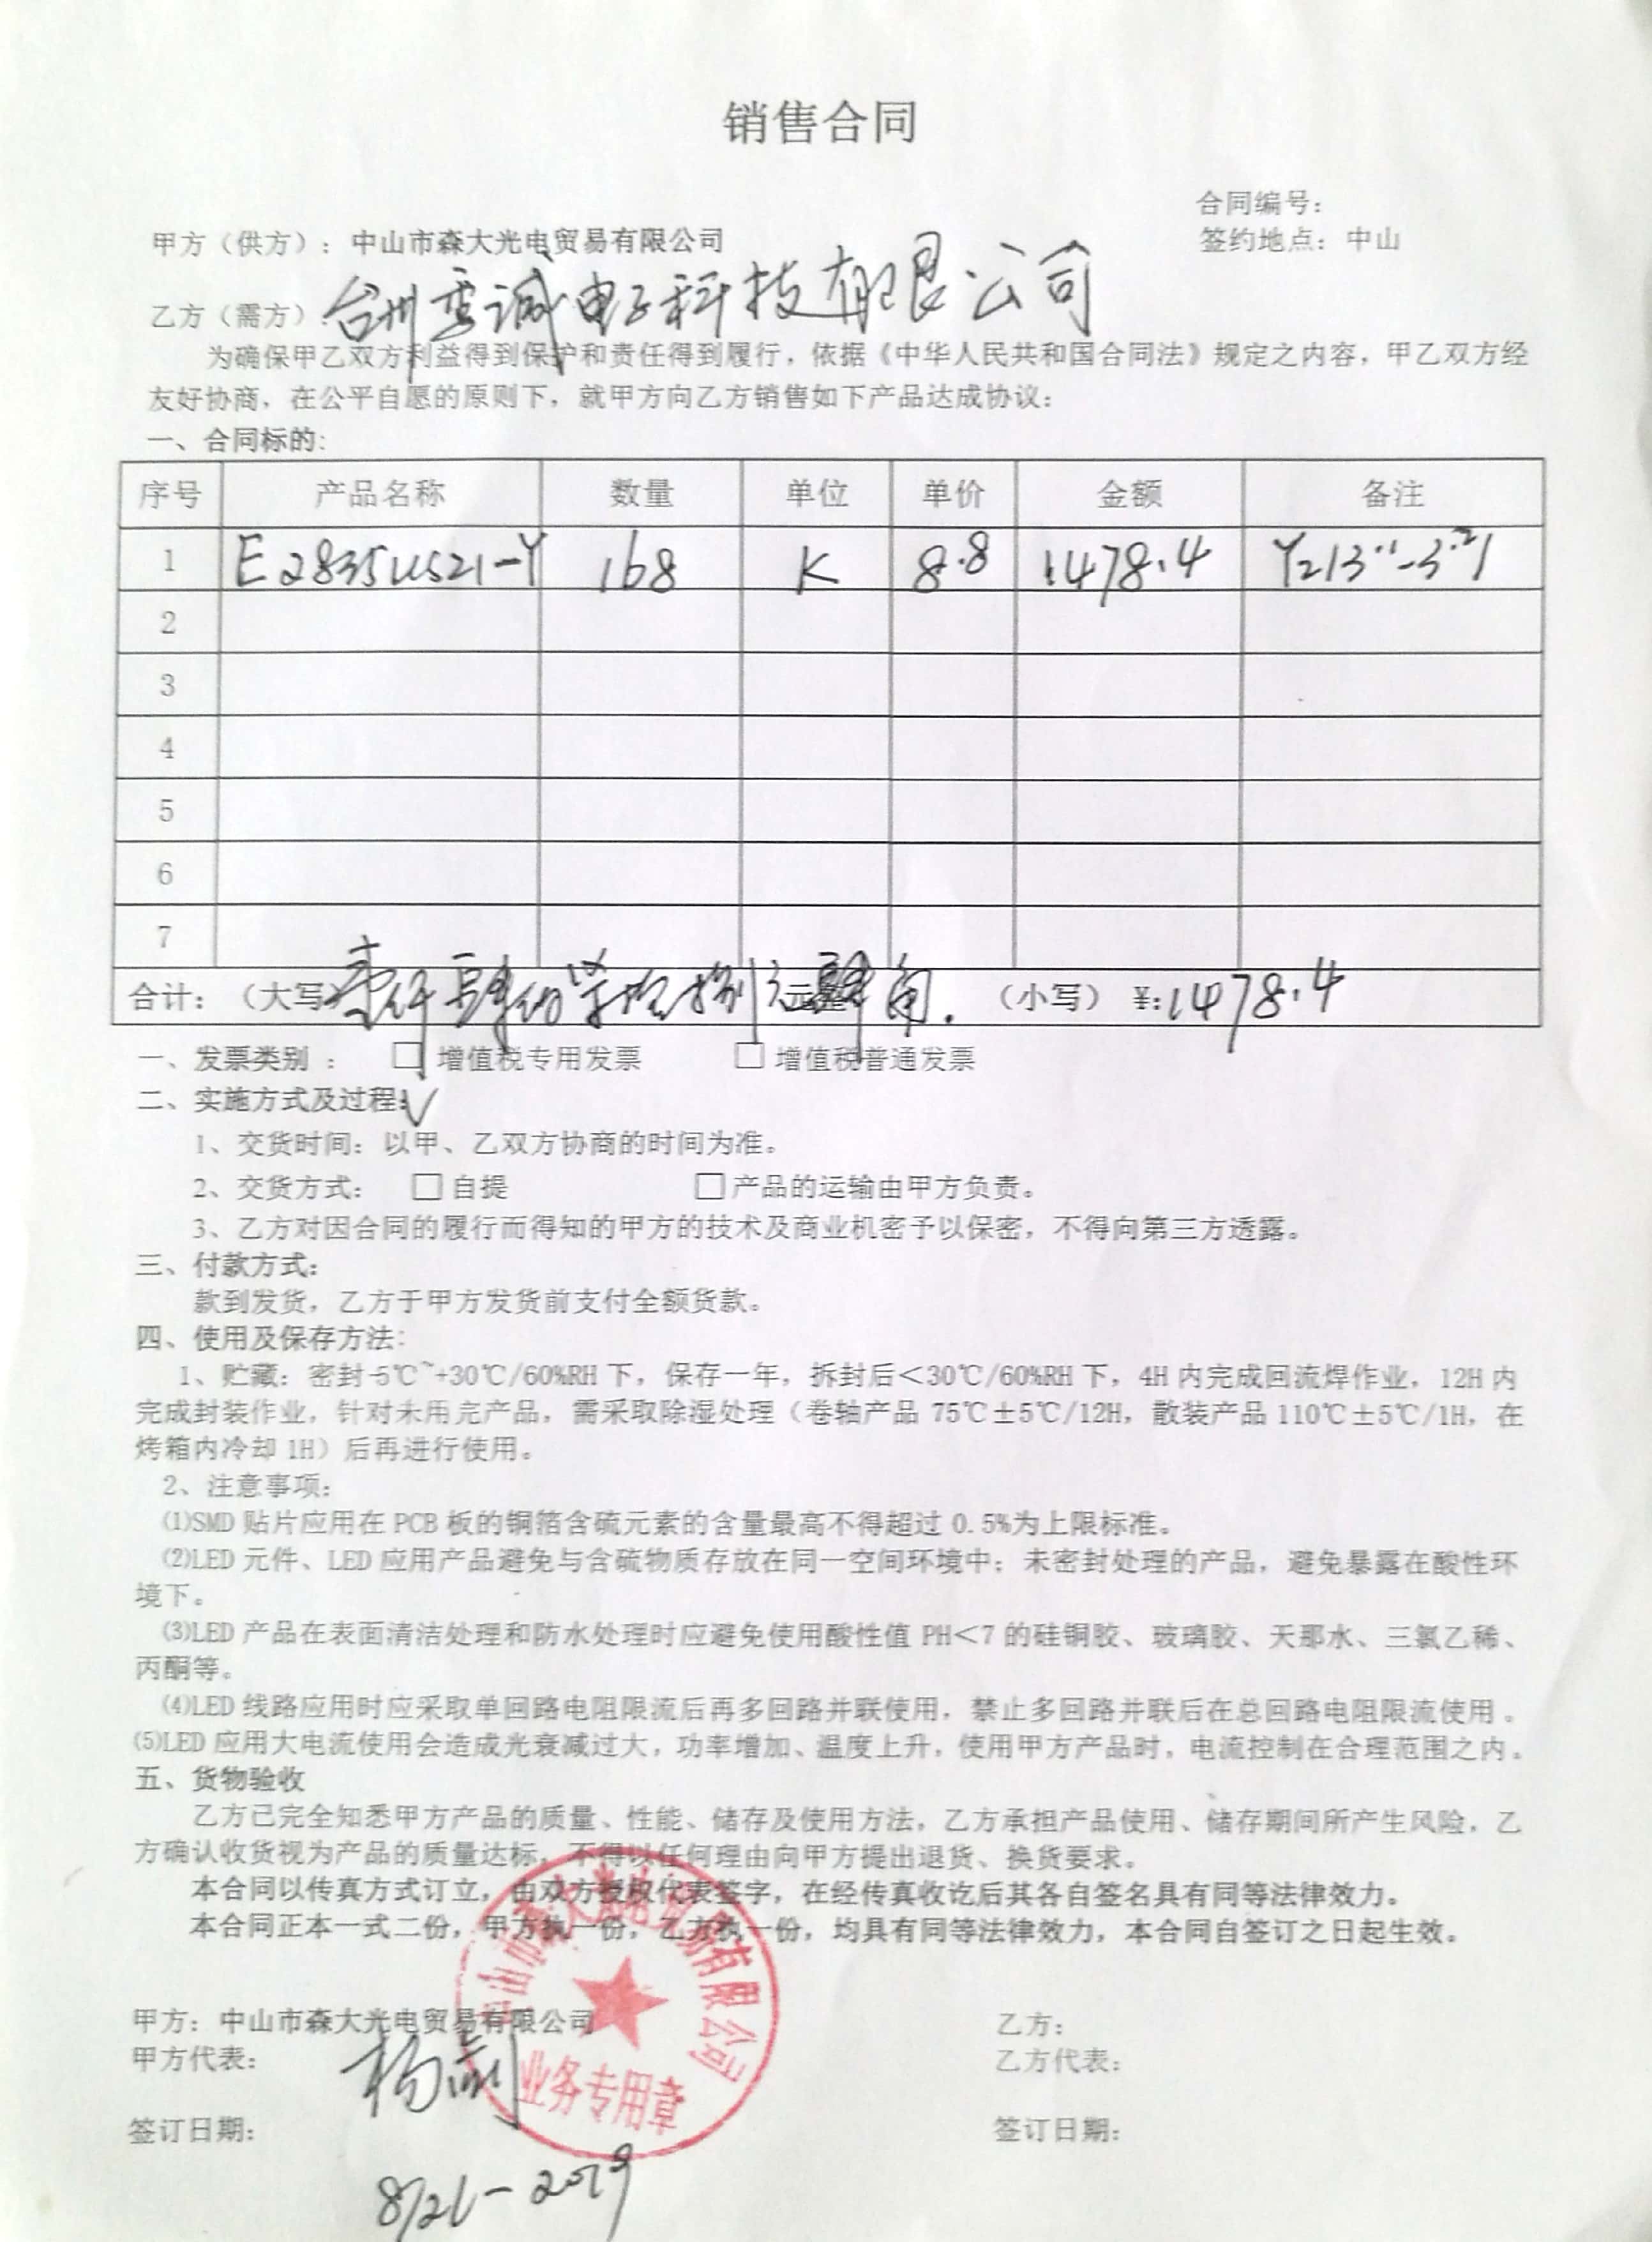 销售合同
合同编号：
甲方（供方）：中山市森大光电贸易有限公司
签约地点：中山
乙方（需方）：台州 诚电子科技有限公司
为确保甲乙双方利益得到保护和责任得到履行，依据《中华人民共和国合同法》规定之内容，甲乙双方经
友好协商，在公平自愿的原则下，就甲方向乙方销售如下产品达成协议：
一、合同标的：
序号 产品名称 数量 单位 单价 金额 备注
1 E2835US21-Y 168 K 8.8 1478.4
2
3
4
5
6
7
合计：（大写）壹仟肆佰柒拾捌元肆角. （小写）¥：1478.4
一、发票类别 ： □ 增值税专用发票 □ 增值税普通发票
二、实施方式及过程：√
1、交货时间：以甲、乙双方协商的时间为准。
2、交货方式： □ 自提 □ 产品的运输由甲方负责。
3、乙方对因合同的履行而得知的甲方的技术及商业机密予以保密，不得向第三方透露。
三、付款方式：
款到发货，乙方于甲方发货前支付全额货款。
四、使用及保存方法：
1、贮藏：密封-5℃~+30℃/60%RH 下，保存一年，拆封后＜30℃/60%RH 下，4H 内完成回流焊作业，12H 内
完成封装作业，针对未用完产品，需采取除湿处理（卷轴产品 75℃±5℃/12H，散装产品 110℃±5℃/1H，在
烤箱内冷却 1H）后再进行使用。
2、注意事项：
⑴SMD 贴片应用在 PCB 板的铜箔含硫元素的含量最高不得超过 0.5%为上限标准。
⑵LED 元件、LED 应用产品避免与含硫物质存放在同一空间环境中；未密封处理的产品，避免暴露在酸性环
境下。
⑶LED 产品在表面清洁处理和防水处理时应避免使用酸性值 PH＜7 的硅铜胶、玻璃胶、天那水、三氯乙稀、
丙酮等。
⑷LED 线路应用时应采取单回路电阻限流后再多回路并联使用，禁止多回路并联后在总回路电阻限流使用 。
⑸LED 应用大电流使用会造成光衰减过大，功率增加、温度上升，使用甲方产品时，电流控制在合理范围之内。
五、货物验收
乙方已完全知悉甲方产品的质量、性能、储存及使用方法，乙方承担产品使用、储存期间所产生风险，乙
方确认收货视为产品的质量达标，不得以任何理由向甲方提出退货、换货要求。
本合同以传真方式订立，由双方授权代表签字，在经传真收讫后其各自签名具有同等法律效力。
本合同正本一式二份，甲方执一份，乙方执一份，均具有同等法律效力，本合同自签订之日起生效。
中山市森大光电贸易有限公司
业务专用章
甲方：中山市森大光电贸易有限公司 乙方：
甲方代表： 杨 乙方代表：
签订日期： 签订日期：
8/21-2019